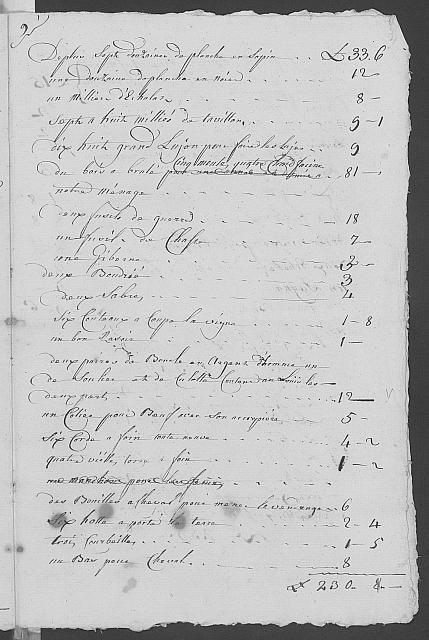 9
De plus Sept douzaine de planche en Sapin . . £ 33.6
une douzaine de planche en Noié . . 12
un millier d'Echalas . . 8 -
Sept a huit millié de tavillon . . 9 - 1
dix huit grand Lujon pour faire les . . 9
Du bois a brulé Cinq monte quatre . . 81 -
notre ménage
deux fusils de guerre . . 18
un fusil de Chasse . . 7 -
une Giberne . . 3 -
deux Boudrié . . 3
deux Sabres . . 4
Six Couteaux a Coupé la vigne . . 1 - 8
un bon Rasoir . . 1 -
deux paires de Boucle en Argent d'homme un
de Soulier et de Culotte Coutant cinq Louis les
deux part . . 12
un Colier pour Beuf avec son . . 5 -
Six Corde a foin toute neuve . . 4 - 2
quatre vieille . . a foin . . 1 - 2
des Bouilles a Cheval pour mener la vendange . 6
Six hotte a porté la terre . . 2 - 4
trois Courbeilles . . 1 - 5
un Bas pour Cheval . . 8
£ 230 - 8 -